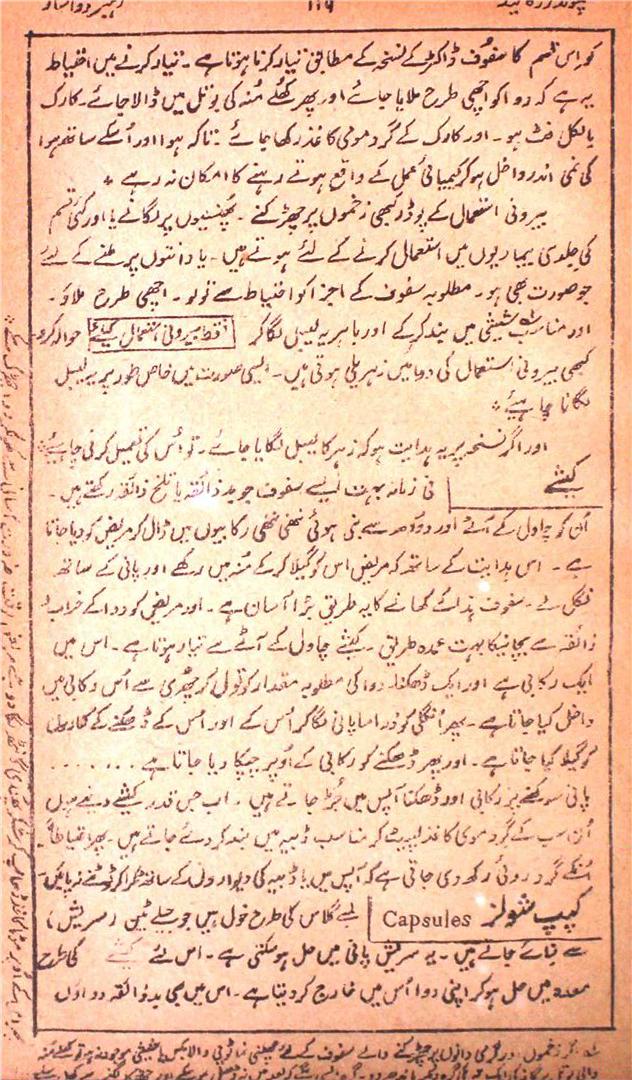 ۱۱۹
کو اِس قسم کا سفُوف ڈاکٹر کے نسخہ کے مطابق تیار کرنا ہوتا ہے۔ تیار کرنے میں احتیاط
یہ ہے کہ دوا کو اچھی طرح ملایا جائے اور پھر کھلے مُنہ کی بوتل میں ڈالا جائے۔ کارک
بالکل فٹ ہو۔ اور کارک کے گرد مومی کاغذ رکھا جائے۔ تاکہ ہوا اور اُسکے ساتھ ہوا
کی نمی اندر داخل ہوکر کیمیائی عمل کے واقع ہوتے رہنے کا امکان نہ رہے *
بیرونی استعمال کے پوڈر کبھی زخموں پر چھڑکنے۔ پُھنسیوں پر لگانے یا اور کئی قسم
کی جلدی بیماریوں میں استعمال کرنے کے لئے ہوتے ہیں۔ یا دانتوں پر ملنے کے لئے
جو صورت بھی ہو۔ مطلوبہ سفوف کے اجزا کو احتیاط سے تولو۔ اچھی طرح ملاؤ۔
اور مناسب شیشی میں بند کرکے اور باہر یہ لیبل لگا کر فقط بیرونی استعمال کیلئے حوالہ کرو
کبھی بیرونی استعمال کی دوا میں زہریلی ہوتی ہیں۔ ایسی صورت میں خاص طور پر یہ لیبل
لگانا چاہیئے *
اور اگر نسخہ پر یہ ہدایت ہو کہ زہر کا لیبل لگایا جائے۔ تو اُس کی تعمیل کرنی چاہیئے *
کیشے فی زمانہ بہت ایسے سفوف جو بدذائقہ یا تلخ ذائقہ رکھتے ہیں۔
اُن کو چاول کے آٹے اور دودھ سے بنی ہوئی ننھی ننھی رکابیوں میں ڈال کر مریض کو دیا جاتا
ہے۔ اس ہدایت کے ساتھ کہ مریض اس کو گیلا کرکے مُنہ میں رکھے اور پانی کے ساتھ
نگل لے۔ سفوف ہذا کے کھانے کا یہ طریق بڑا آسان ہے۔ اور مریض کو دوا کے خراب
ذائقہ سے بچانیکا بہت عمدہ طریق۔ کیشے چاول کے آٹے سے تیار ہوتا ہے۔ اس میں
ایک رکابی ہے اور ایک ڈھکنا۔ دوا کی مطلوبہ مقدار کو تول کر چھری سے اُس رکابی میں
داخل کیا جاتا ہے۔ پھر اُنگلی کو ذرا سا پانی لگا کر اُس کے اور اُس کے ڈھکنے کے کناروں
کو گیلا کیا جاتا ہے۔ اور پھر ڈھکنے کو رکابی کے اُوپر چپکا دیا جاتا ہے .......
پانی سوکھنے پر رکابی اور ڈھکنا آپس میں جُڑ جاتے ہیں۔ اب جس قدر کیشے دینے ہوں
اُن سب کے گرد مومی کاغذ لپیٹ کر مناسب ڈبیہ میں بند کر دئے جاتے ہیں۔ پھر احتیاطاً
اُنکے گرد روئی رکھ دی جاتی ہے کہ آپس میں یا ڈبیہ کی دیواروں کے ساتھ ٹکرا کر ٹوٹنے نہ پائیں
کیپ شولز Capsules لمبے گلاس کی طرح خول ہیں جو جیلے ٹین (سریش)
سے بنائے جاتے ہیں۔ یہ سریش پانی میں حل ہوسکتی ہے۔ اس لئے کیشے کی طرح
معدہ میں حل ہو کر اپنی دوا اُس میں خارج کر دیتا ہے۔ اس میں بھی بدذائقہ دواؤں